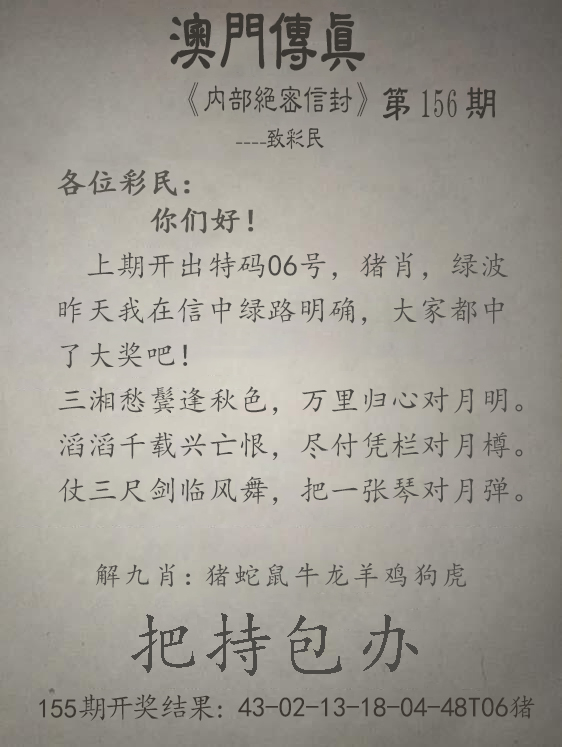 澳門傳眞
《内部絕密信封》第156期
----致彩民
各位彩民：
你们好！
上期开出特码06号，猪肖，绿波
昨天我在信中绿路明确，大家都中
了大奖吧！
三湘愁鬓逢秋色，万里归心对月明。
滔滔千载兴亡恨，尽付凭栏对月樽。
仗三尺剑临风舞，把一张琴对月弹。
解九肖：猪蛇鼠牛龙羊鸡狗虎
把持包办
155期开奖结果：43-02-13-18-04-48T06猪